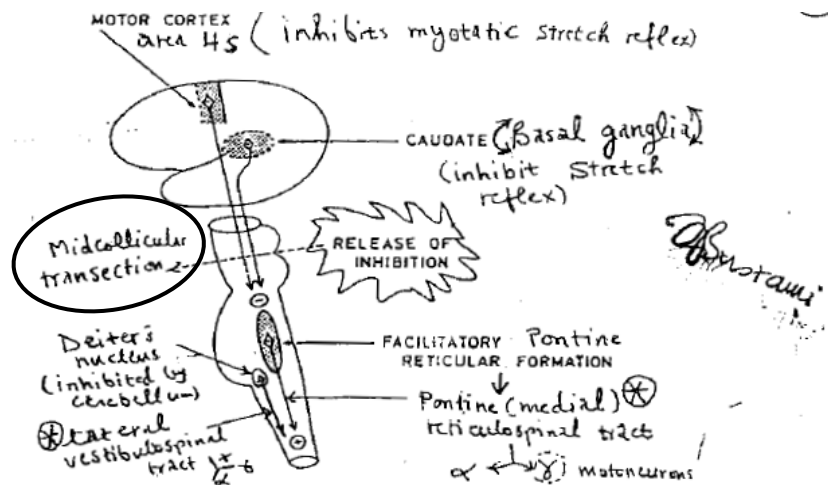 MOTOR CORTEX
area 4s (inhibits myotatic stretch reflex)
CAUDATE (Basal ganglia)
(inhibit stretch
reflex)
Midcollicular
transection
RELEASE OF
INHIBITION
Bustami
Deiter's
nucleus
(inhibited by
cerebellum)
FACILITATORY Pontine
RETICULAR FORMATION
Pontine (medial)
reticulospinal tract
Lateral
vestibulospinal
tract
α γ motoneurons